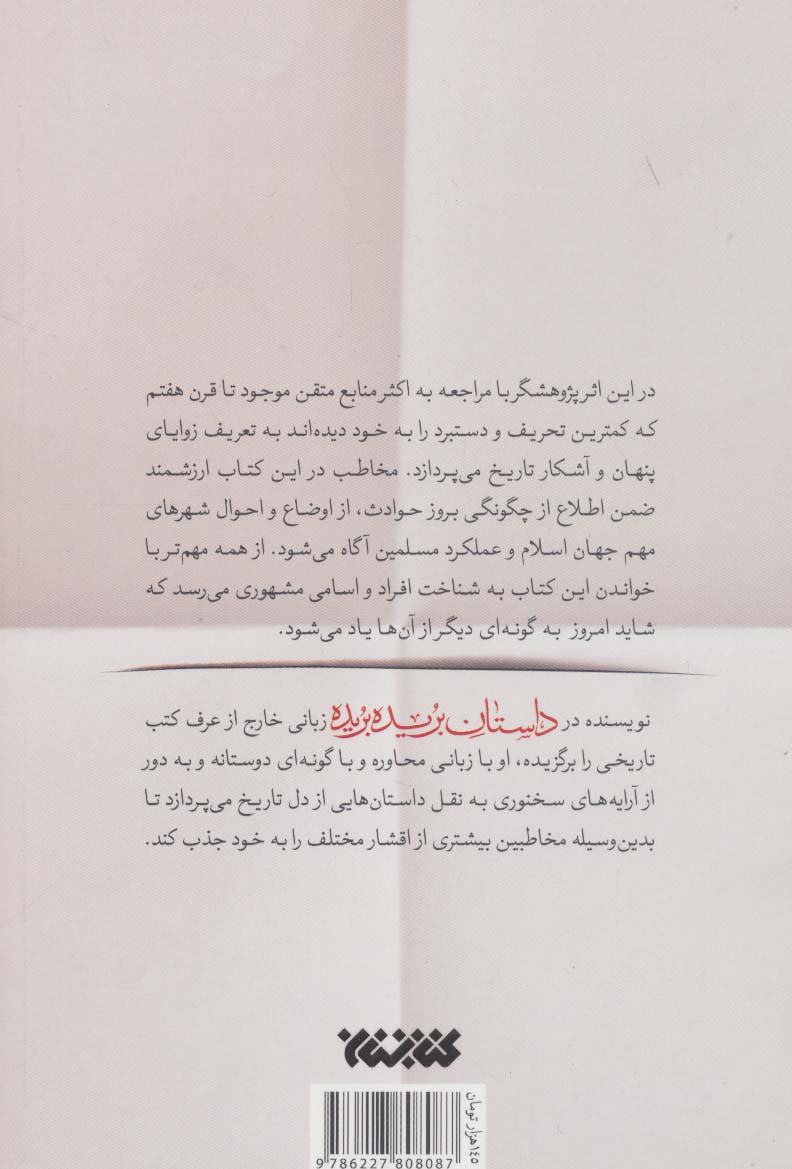 در این اثر پژوهشگر با مراجعه به اکثر منابع متقن موجود تا قرن هفتم
که کمترین تحریف و دستبرد را به خود دیده‌اند به تعریف زوایای
پنهان و آشکار تاریخ می‌پردازد. مخاطب در این کتاب ارزشمند
ضمن اطلاع از چگونگی بروز حوادث، از اوضاع و احوال شهرهای
مهم جهان اسلام و عملکرد مسلمین آگاه می‌شود. از همه مهم‌تر با
خواندن این کتاب به شناخت افراد و اسامی مشهوری می‌رسد که
شاید امروز به گونه‌ای دیگر از آن‌ها یاد می‌شود.
نویسنده در داستانِ بریده بریده زبانی خارج از عرف کتب
تاریخی را برگزیده، او با زبانی محاوره و با گونه‌ای دوستانه و به دور
از آرایه‌های سخنوری به نقل داستان‌هایی از دل تاریخ می‌پردازد تا
بدین‌وسیله مخاطبین بیشتری از اقشار مختلف را به خود جذب کند.
کتابستان
۱۴۵هزار تومان
9 786227 808087